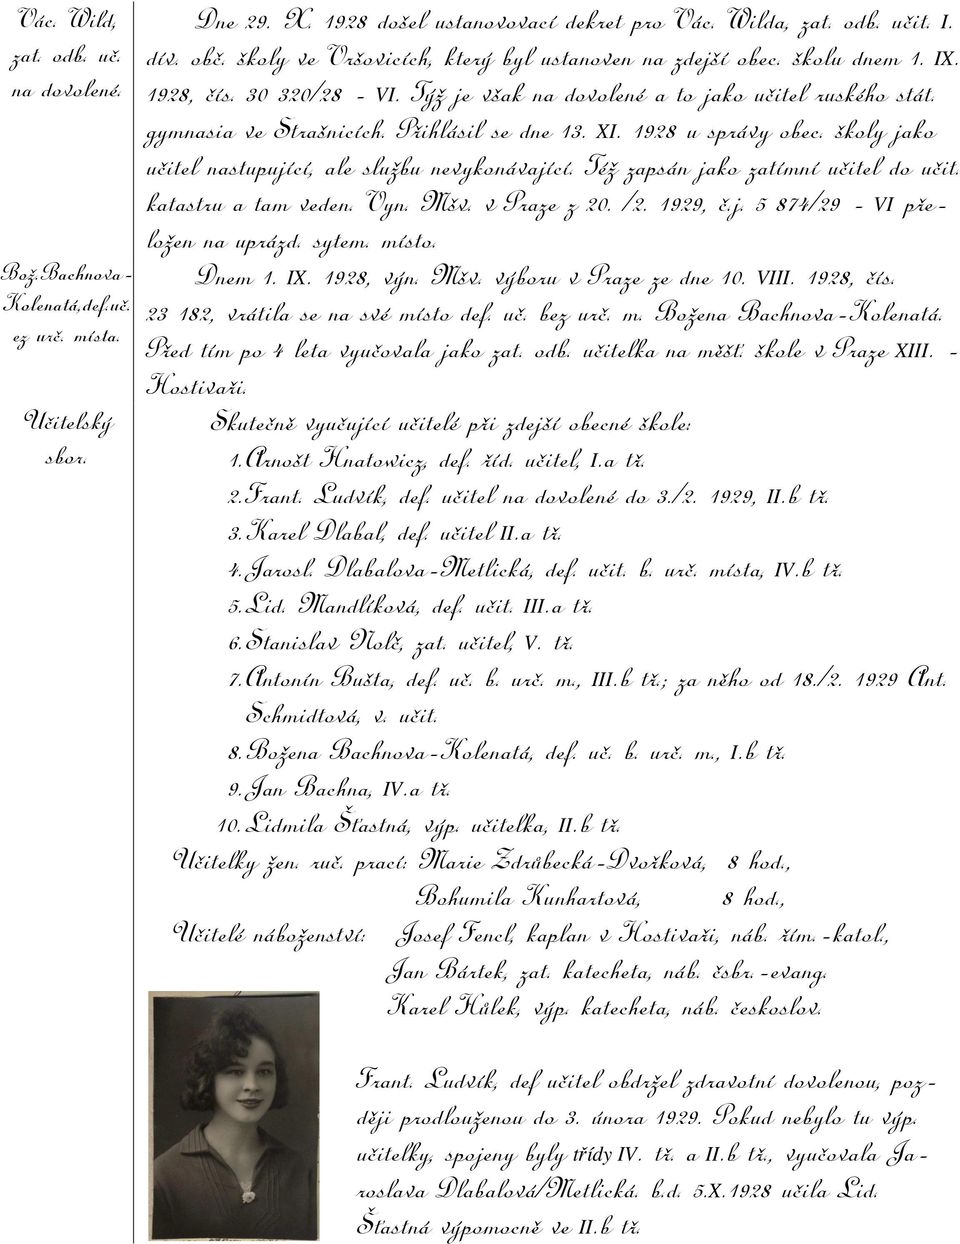 Vác. Wild,
zat. odb. uč.
na dovolené.
Dne 29. X. 1928 došel ustanovovací dekret pro Vác. Wilda, zat. odb. učit. I.
dív. obč. školy ve Vršovicích, který byl ustanoven na zdejší obec. školu dnem 1. IX.
1928, čís. 30 320/28 - VI. Týž je však na dovolené a to jako učitel ruského stát.
gymnasia ve Strašnicích. Přihlásil se dne 13. XI. 1928 u správy obec. školy jako
učitel nastupující, ale službu nevykonávající. Též zapsán jako zatímní učitel do učit.
katastru a tam veden. Vyn. Mšv. v Praze z 20. /2. 1929, č.j. 5 874/29 - VI pře-
ložen na uprázd. sytem. místo.
Bož.Bachnova-
Kolenatá,def.uč.
ez urč. místa.
Dnem 1. IX. 1928, výn. Mšv. výboru v Praze ze dne 10. VIII. 1928, čís.
23 182, vrátila se na své místo def. uč. bez urč. m. Božena Bachnova-Kolenatá.
Před tím po 4 leta vyučovala jako zat. odb. učitelka na měšť. škole v Praze XIII. -
Hostivaři.
Učitelský
sbor.
Skutečně vyučující učitelé při zdejší obecné škole:
1.Arnošt Hnatowicz, def. říd. učitel, I.a tř.
2.Frant. Ludvík, def. učitel na dovolené do 3./2. 1929, II.b tř.
3.Karel Dlabal, def. učitel II.a tř.
4.Jarosl. Dlabalova-Metlická, def. učit. b. urč. místa, IV.b tř.
5.Lid. Mandlíková, def. učit. III.a tř.
6.Stanislav Nolč, zat. učitel, V. tř.
7.Antonín Bušta, def. uč. b. urč. m., III.b tř.; za něho od 18./2. 1929 Ant.
Schmidtová, v. učit.
8.Božena Bachnova-Kolenatá, def. uč. b. urč. m., I.b tř.
9.Jan Bachna, IV.a tř.
10.Lidmila Šťastná, výp. učitelka, II.b tř.
Učitelky žen. ruč. prací: Marie Zdrůbecká-Dvořková, 8 hod.,
Bohumila Kunhartová, 8 hod.,
Učitelé náboženství: Josef Fencl, kaplan v Hostivaři, náb. řím.-katol.,
Jan Bártek, zat. katecheta, náb. čsbr.-evang.
Karel Hůlek, výp. katecheta, náb. českoslov.
Frant. Ludvík, def učitel obdržel zdravotní dovolenou, poz-
ději prodlouženou do 3. února 1929. Pokud nebylo tu výp.
učitelky, spojeny byly třídy IV. tř. a II.b tř., vyučovala Ja-
roslava Dlabalová/Metlická. b.d. 5.X.1928 učila Lid.
Šťastná výpomocně ve II.b tř.